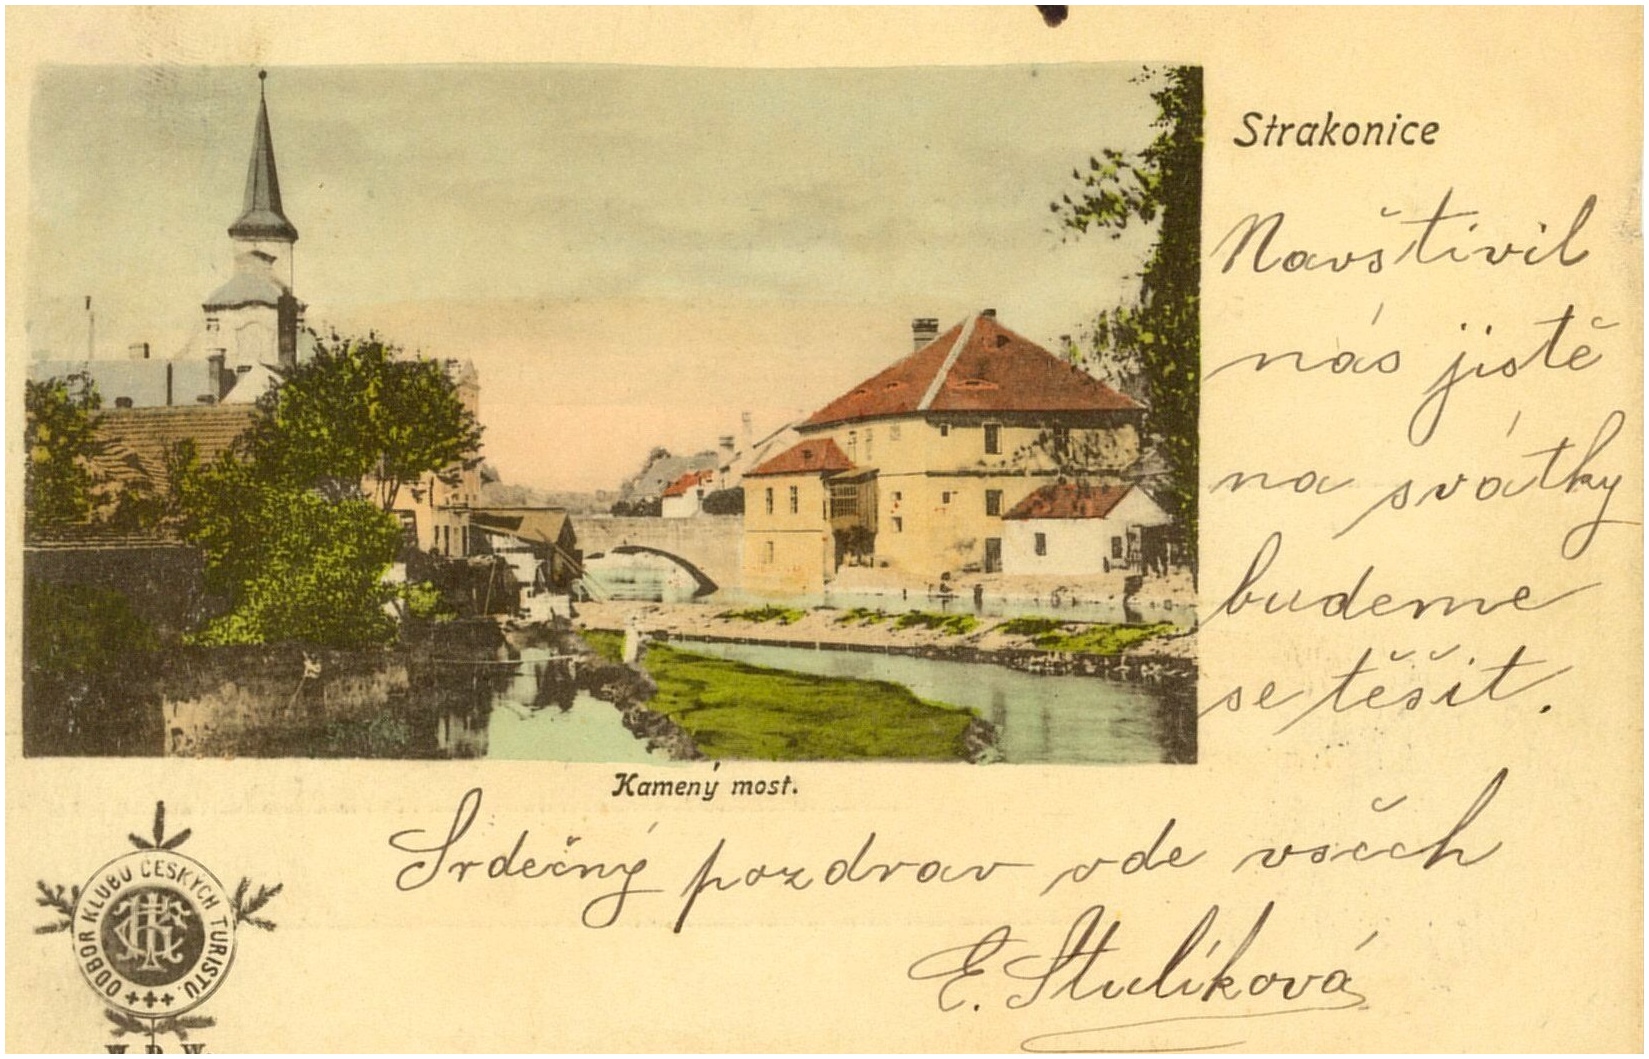 Strakonice
Navštivil
nás jistě
na svátky
budeme
se těšit.
Kamený most.
Srdečný pozdrav ode všech
E. Stulíková
ODBOR KLUBU ČESKÝCH TURISTŮ.